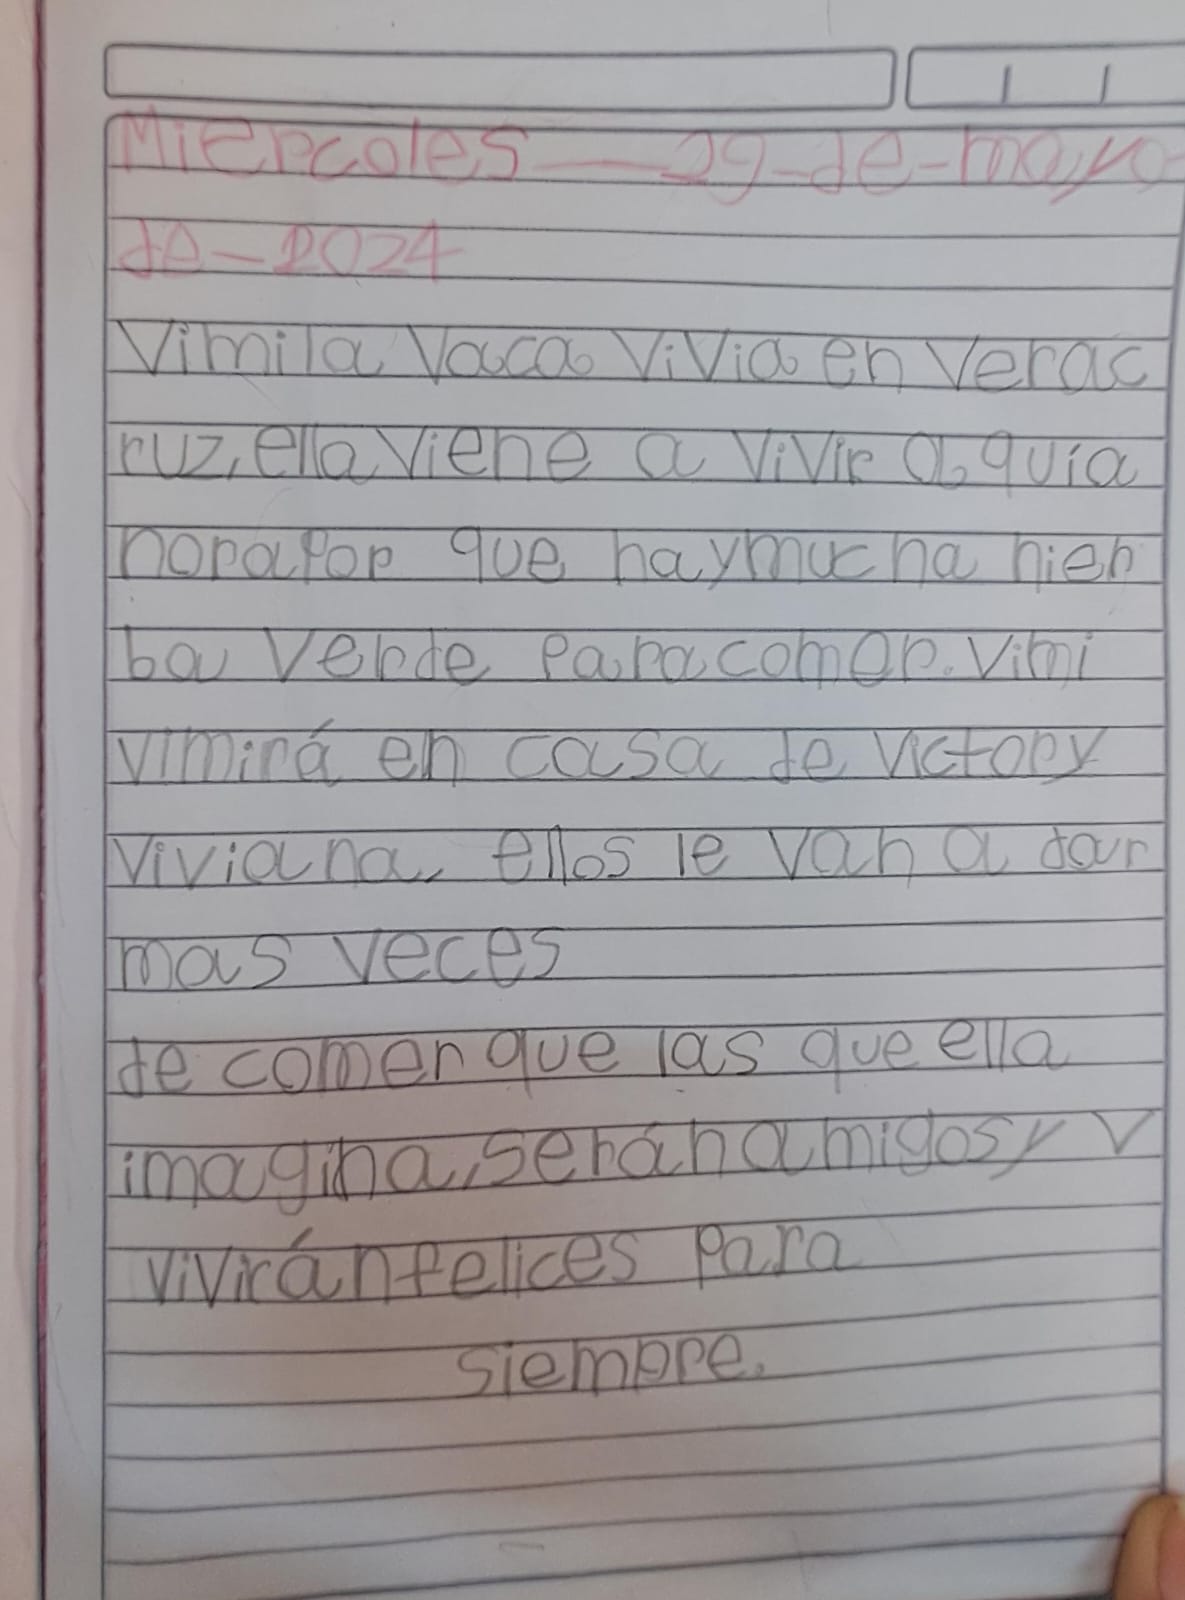 Miercoles — 29-de-mayo-
de-2024
Vimila Vaca ViVia en Verac
ruz, ella Viene a ViVir a quía
horapor que haymucha hier
ba Verde Paracomer. Vimi
vimirá en casa de Victory
Viviana, ellos le Van a dar
mas veces
de comer que las que ella
imagina, seránamigosy V
ViViránfelices Para
siempre.